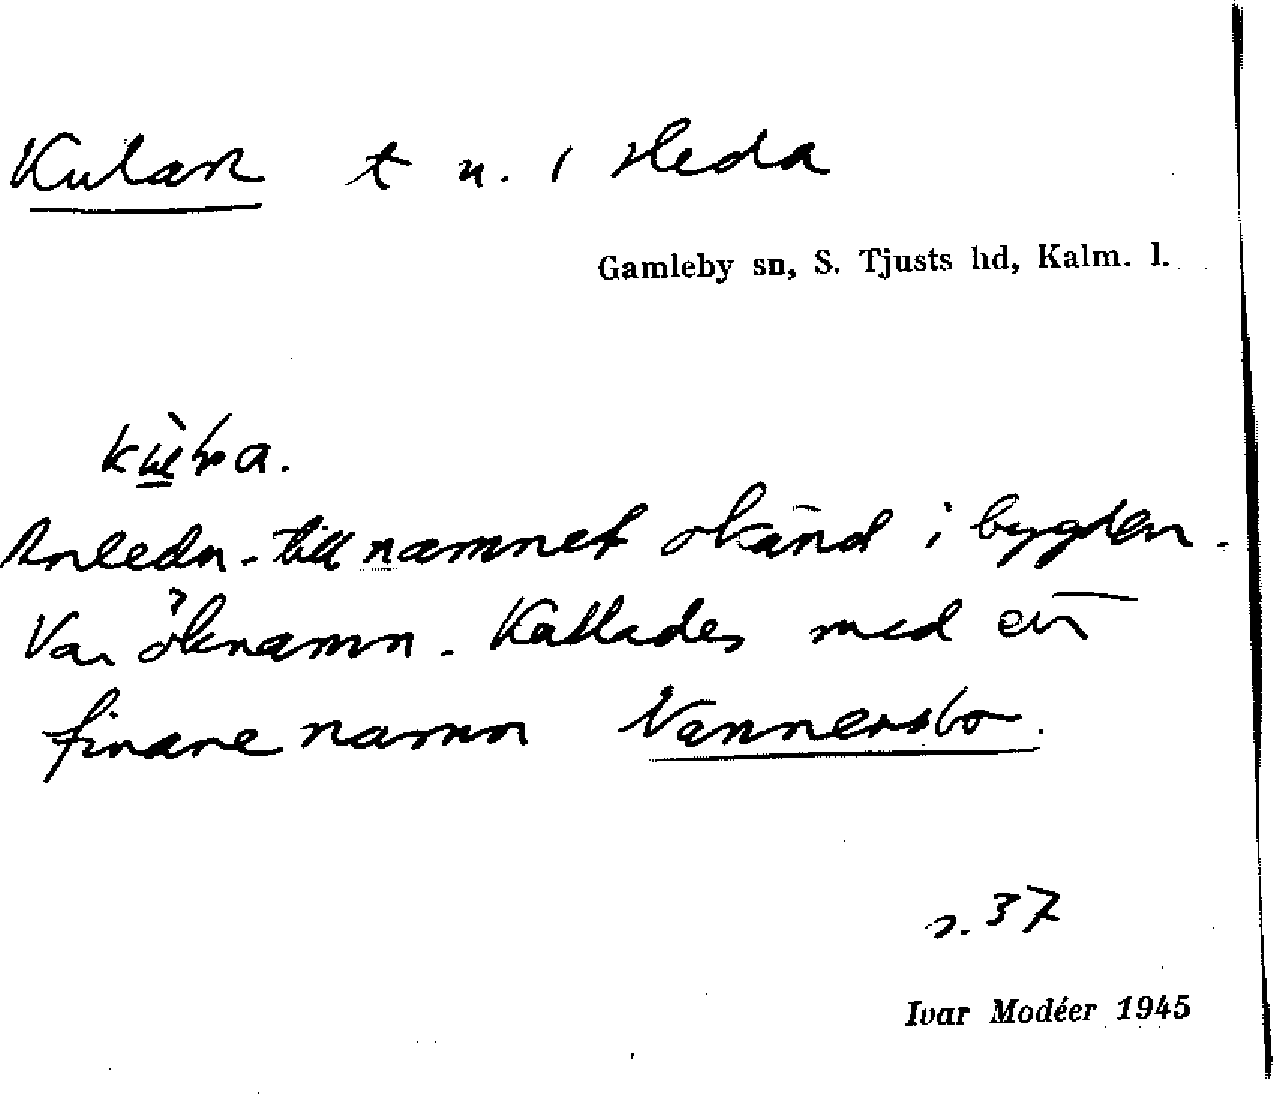 Kulan t u. i Heda
Gamleby sn, S. Tjusts hd, Kalm. l.
Anledn. till namnet okänd i bygden.
Var öknamn. Kallades med ett
finare namn Vannersbo.
s. 37
Ivar Modéer 1945